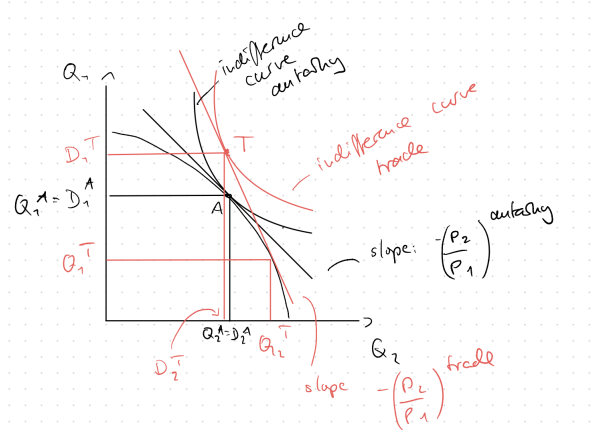 Q₁
indifference
curve
autarky
T
D₁ᵀ
indifference curve
trade
Q₁ᴬ = D₁ᴬ
A
slope: -(P₂/P₁)^autarky
Q₁ᵀ
Q₂ᴬ=D₂ᴬ
Q₂ᵀ
Q₂
D₂ᵀ
slope -(P₂/P₁)^trade